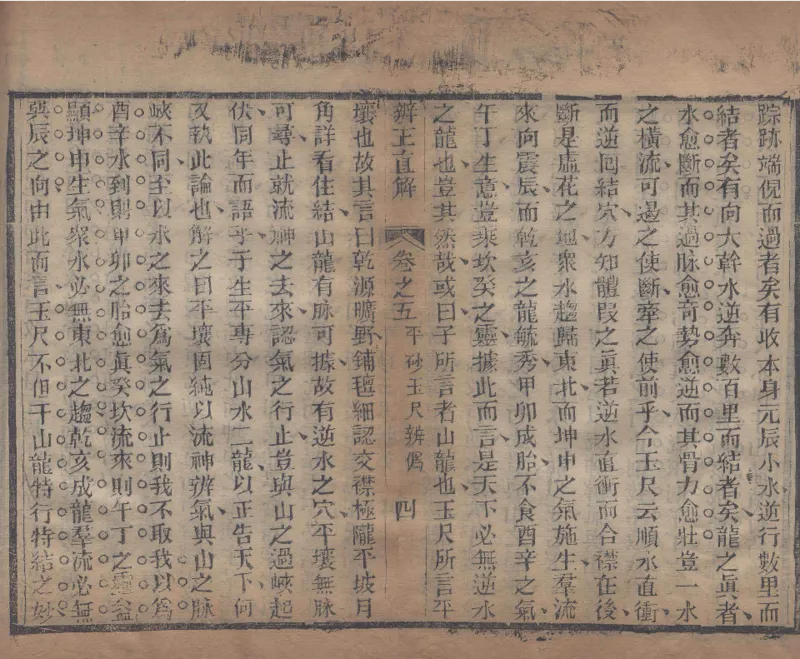 踪跡端倪而過者矣有收本身元辰小水逆行數里而
結者矣有向大幹水逆奔數百里而結者矣龍之眞者
水愈斷而其過脉愈奇勢愈逆而其骨力愈壯豈一水
之橫流可遏之使斷牽之使前乎今玉尺云順水直衝
而逆囘結穴方知體段之眞若逆水直衝而合襟在後
斷是虛花之地衆水趨歸東北而坤申之氣施生羣流
來向震辰而乾亥之龍毓秀甲卯成胎不食酉辛之氣
午丁生意豈乘坎癸之靈據此而言是天下必無逆水
之龍也豈其然哉或曰子所言者山龍也玉尺所言平
辨正直解 卷之五 平砂玉尺辨僞 四
壤也故其言曰乾源曠野鋪氊細認交襟極隴平坡月
角詳看住結山龍有脉可據故有逆水之穴平壤無脉
可尋止就流神之去來認氣之行止豈與山之過峽起
伏同年而語乎子生平專分山水二龍以正告天下何
又執此論也解之曰平壤固純以流神辨氣與山之脉
峽不同至以水之來去爲氣之行止則我不取我以爲
酉辛水到則甲卯之胎愈眞癸坎流來則午丁之靈益
顯坤申生氣衆水必無東北之趨乾亥成龍羣流必無
巽辰之向由此而言玉尺不但于山龍特行特結之妙